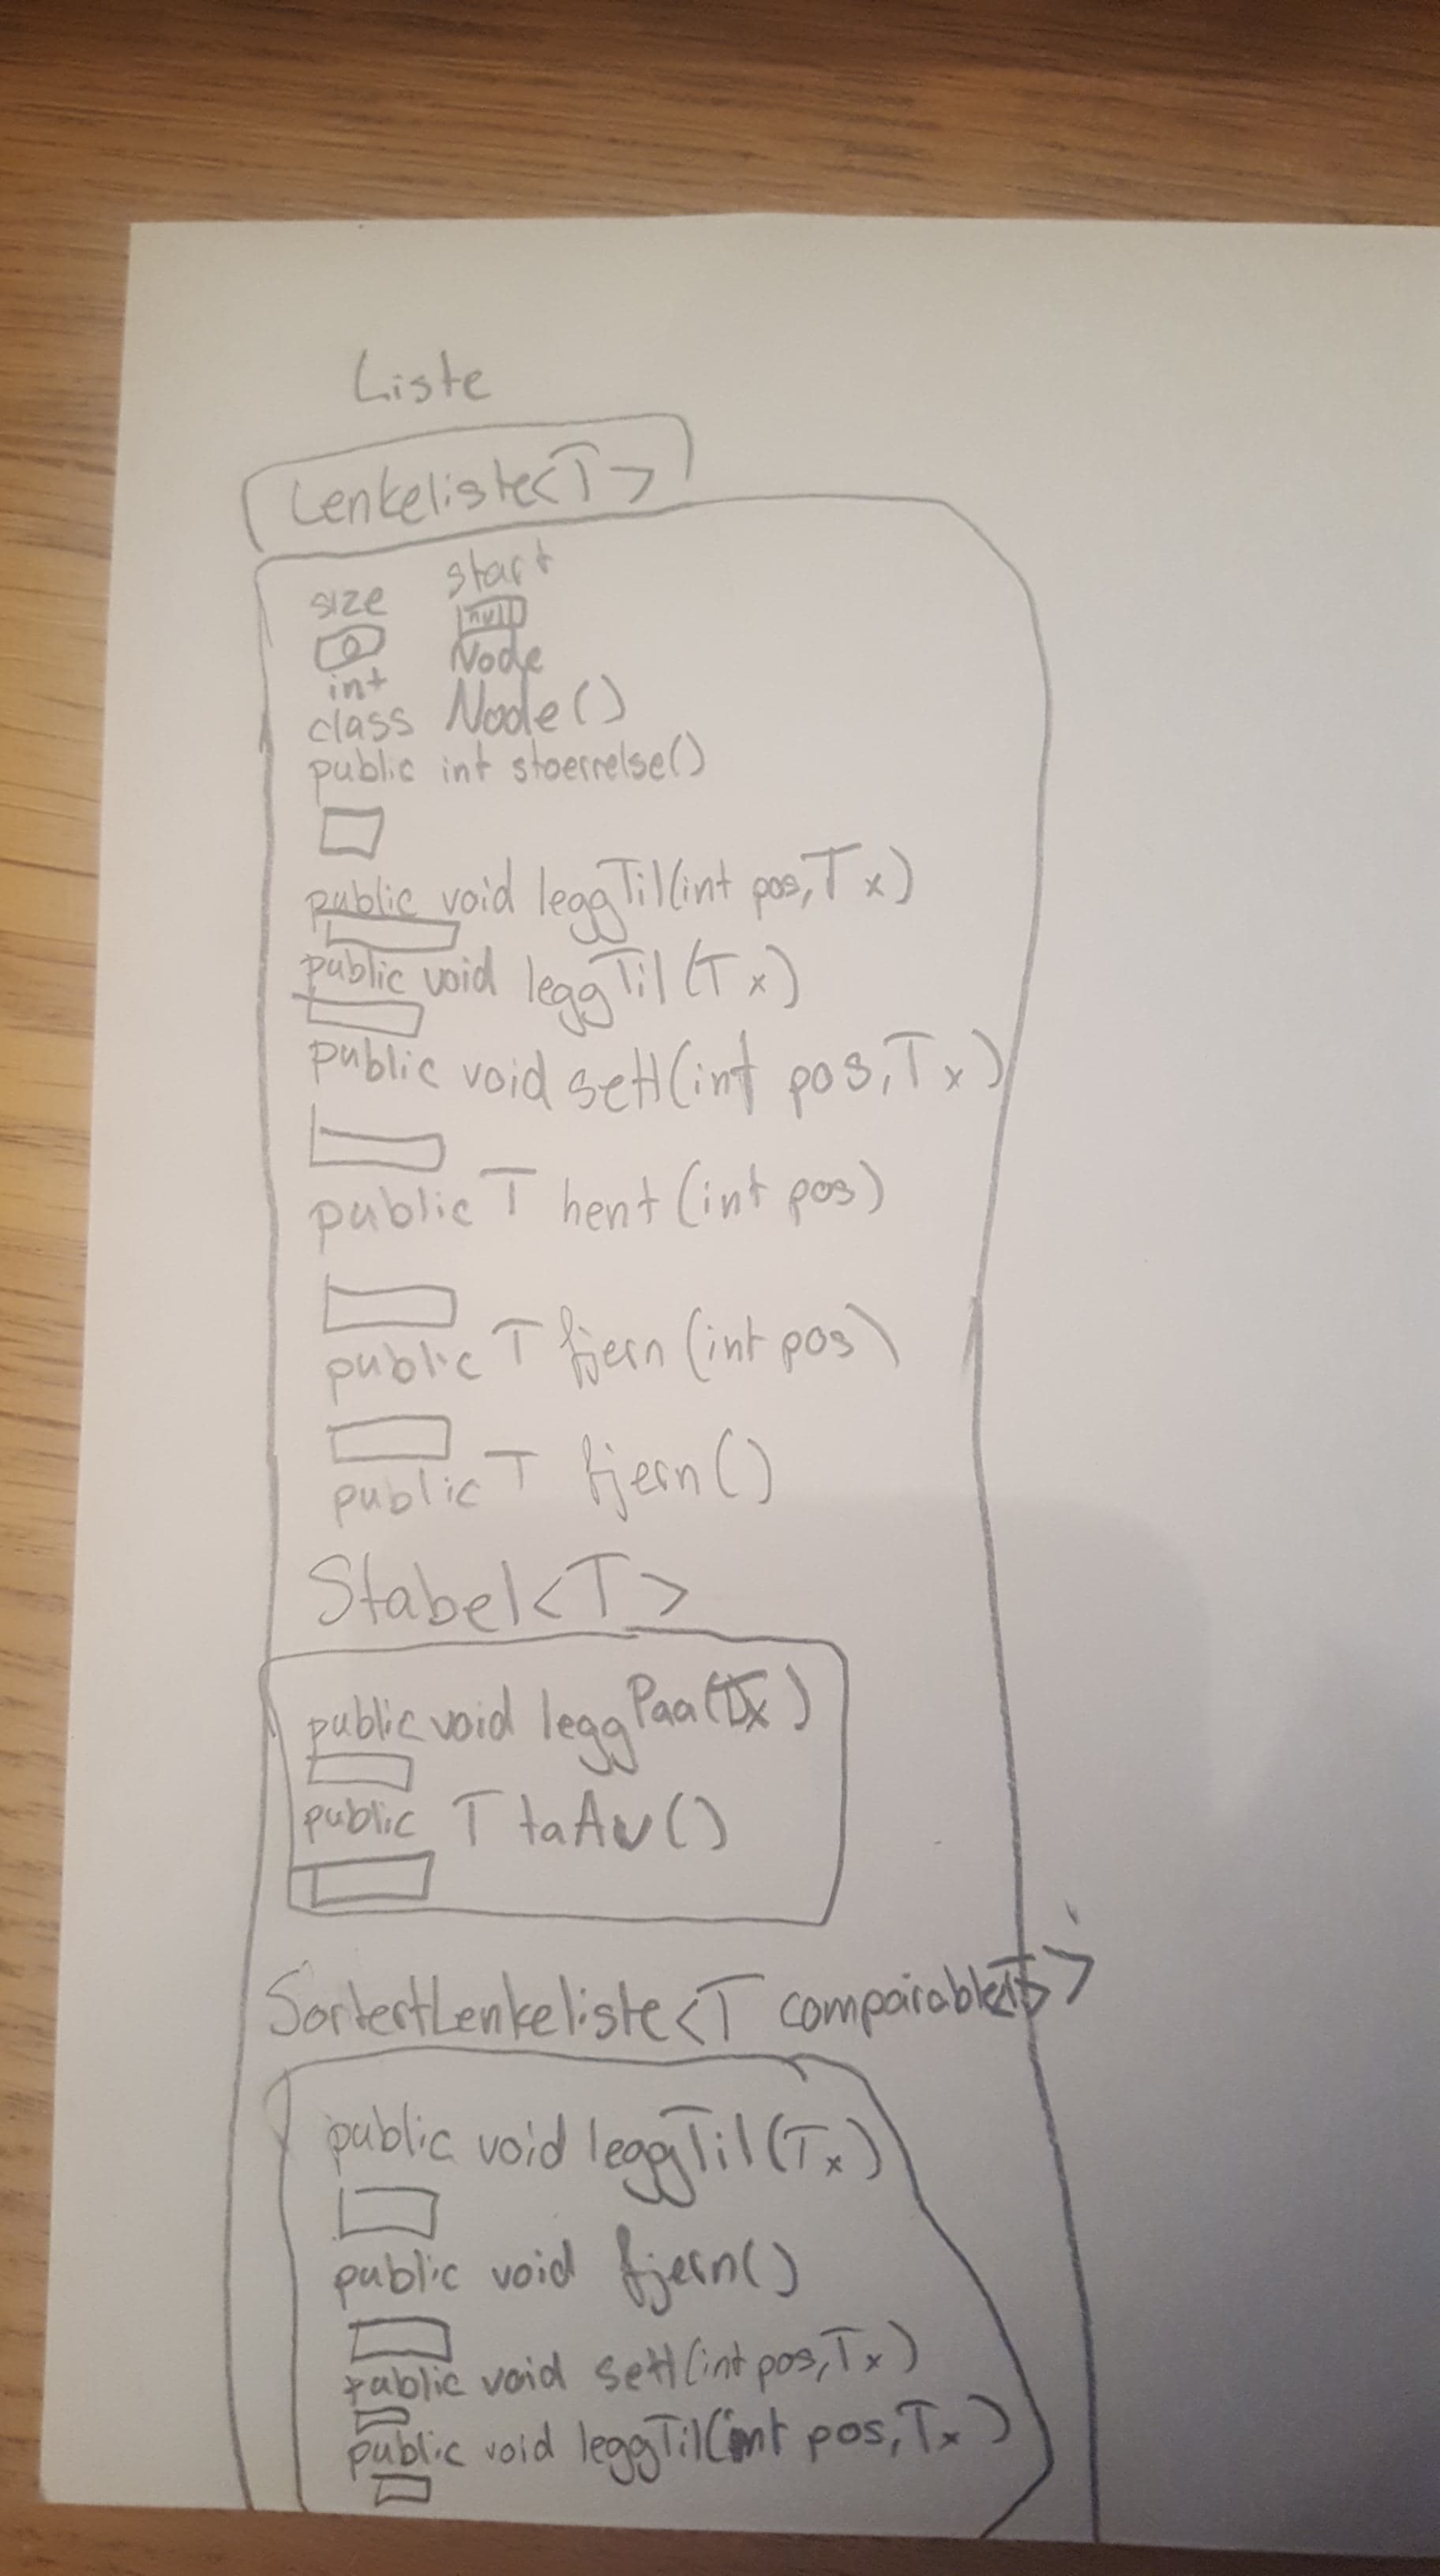 Liste
Lenkeliste<T>
size start
0 null
int Node
class Node()
public int stoerrelse()
public void leggTil(int pos, T x)
public void leggTil(T x)
public void sett(int pos, T x)
public T hent(int pos)
public T fjern(int pos)
public T fjern()
Stabel<T>
public void leggPaa(T x)
public T taAv()
SortertLenkeliste<T comparable<T>>
public void leggTil(T x)
public void fjern()
public void sett(int pos, T x)
public void leggTil(int pos, T x)